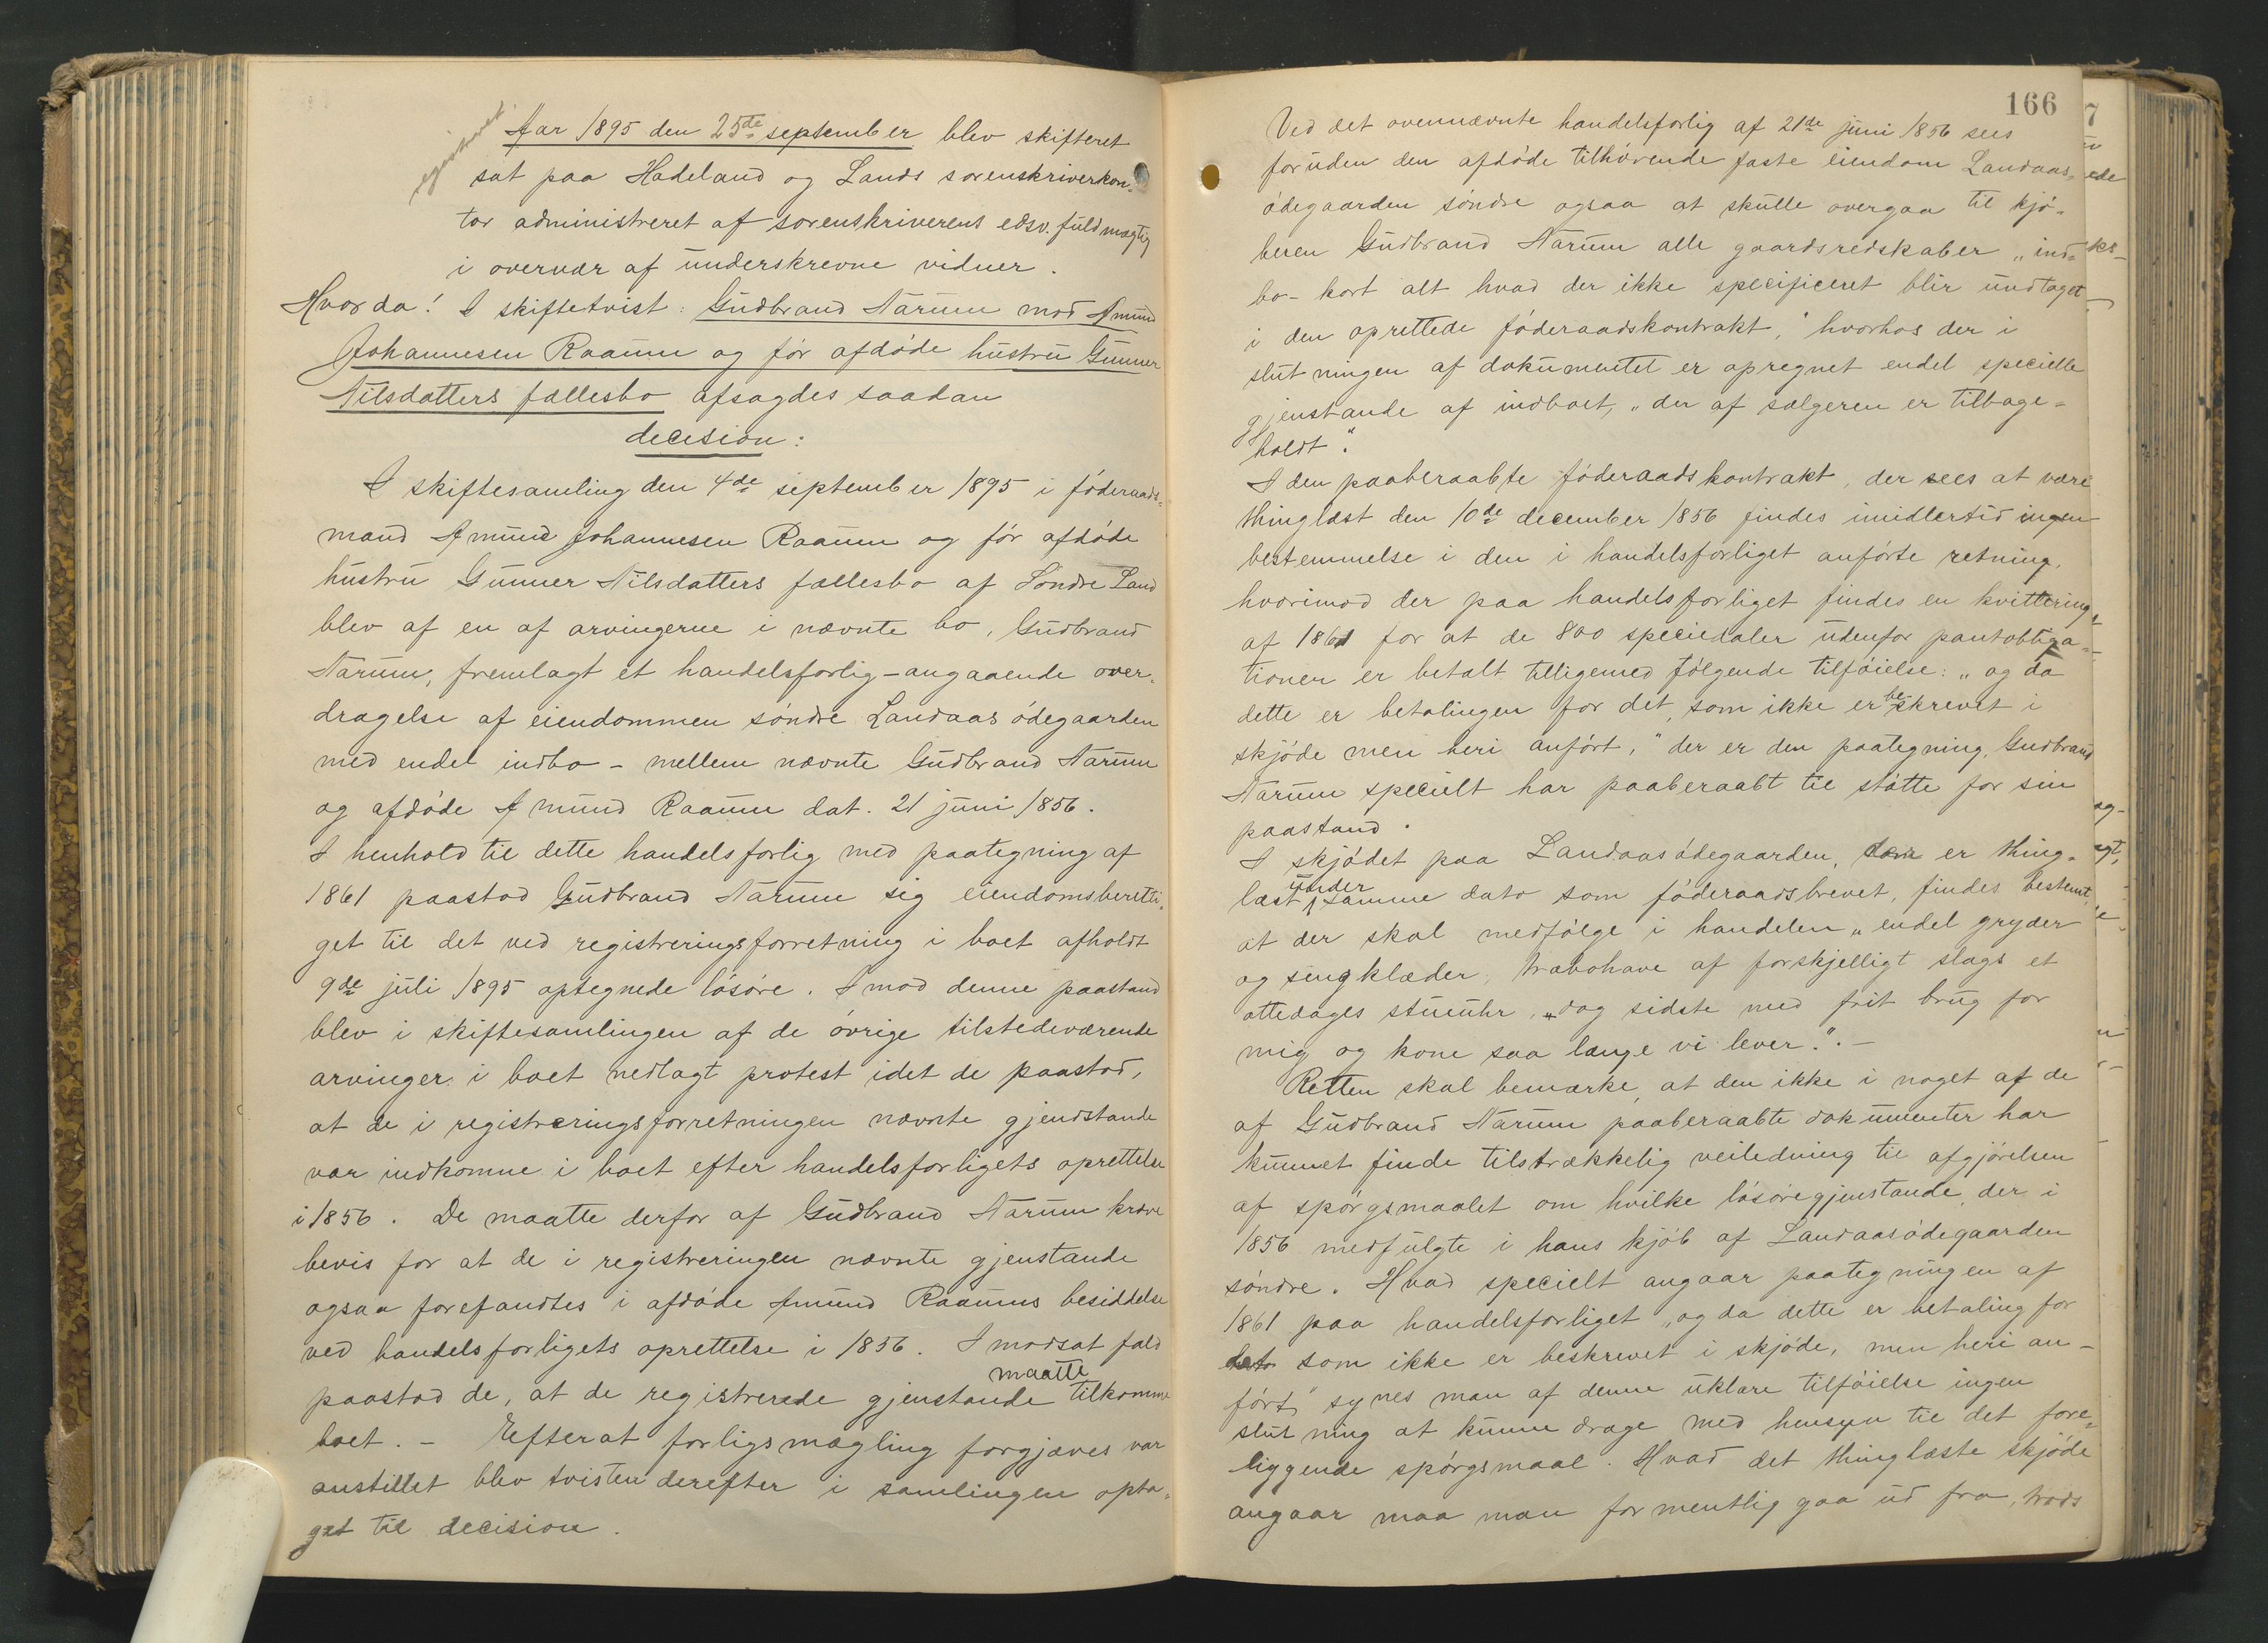 Aar 1895 den 25de september blev skifteret
sat paa Hadeland og Lands sorenskriverkon-
tor administreret af sorenskriverens edsv. fuldmægtig
i overvær af underskrevne vidner.
Hvorda! I skiftetvist: Gudbrand Narum mod Amund
Johannesen Raaum og før afdøde hustru Gunner
Nilsdatters fællesbo afsagdes saadan
decision:
I skiftesamling den 4de september 1895 i føderaads-
mand Amund Johannesen Raaum og før afdøde
hustru Gunner Nilsdatters fællesbo af Søndre Land
blev af en af arvingerne i nævnte bo, Gudbrand
Narum, fremlagt et handelsforlig - angaaende over-
dragelse af eiendommen søndre Landaas ødegaarden
med endel indbo - mellem nævnte Gudbrand Narum
og afdøde Amund Raaum dat. 21 juni 1856.
I henhold til dette handelsforlig med paategning af
1861 paastod Gudbrand Narum sig eiendomsberetti-
get til det ved registreringsforretning i boet afholdt
9de juli 1895 optegnede løsøre. Imod denne paastand
blev i skiftesamlingen af de øvrige tilstedeværende
arvinger i boet nedlagt protest idet de paastod,
at de i registreringsforretningen nævnte gjendstande
var indkomne i boet efter handelsforligets oprettelse
i 1856. De maatte derfor af Gudbrand Narum kræve
bevis for at de i registreringen nævnte gjenstande
ogsaa forefandtes i afdøde Amund Raaums besiddelse
ved handelsforligets oprettelse i 1856. I modsat fald
paastod de, at de registrerede gjenstande maatte tilkomme
boet. - Efterat forligsmægling forgjæves var
anstillet blev tvisten derefter i samlingen opta-
get til decision.
166
Ved det ovennævnte handelsforlig af 21de juni 1856 sees
foruden den afdøde tilhørende faste eiendom Landaas-
ødegaarden søndre ogsaa at skulle overgaa til kjø-
beren Gudbrand Narum alle gaardsredskaber „ind-
bo - kort alt hvad der ikke specificeret blir undtaget
i den oprettede føderaadskontrakt," hvorhos der i
slutningen af dokumentet er opregnet endel specielle
gjenstande af indboet, „der af sælgeren er tilbage-
holdt".
I den paaberaabte føderaadskontrakt, der sees at være
thinglæst den 10de december 1856 findes imidlertid ingen
bestemmelse i den i handelsforliget anførte retning,
hvorimod der paa handelsforliget findes en kvittering
af 1861 for at de 800 speciedaler udenfor pantobliga-
tionen er betalt tilligemed følgende tilføielse: „og da
dette er betalingen for det, som ikke er beskrevet i
skjøde men heri anført," der er den paategning, Gudbrand
Narum specielt har paaberaabt til støtte for sin
paastand.
I skjødet paa Landaasødegaarden, som er thing-
læst under samme dato som føderaadsbrevet, findes bestemt,
at der skal medfølge i handelen „endel gryder
og sengklæder, træbohave af forskjelligt slags et
ottedages stueuhr, dog sidste med frit brug for
mig og kone saa længe vi lever.". -
Retten skal bemærke, at den ikke i noget af de
af Gudbrand Narum paaberaabte dokumenter har
kunnet finde tilstrækkelig veiledning til afgjørelsen
af spørgsmaalet om hvilke løsøregjenstande, der i
1856 medfulgte i hans kjøb af Landaasødegaarden
søndre. Hvad specielt angaar paategningen af
1861 paa handelsforliget „og da dette er betaling for
det som ikke er beskrevet i skjøde, men heri an-
ført" synes man af denne uklare tilføielse ingen
slutning at kunne drage med hensyn til det fore-
liggende spørgsmaal. Hvad det thinglæste skjøde
angaar maa man formentlig gaa ud fra, trods